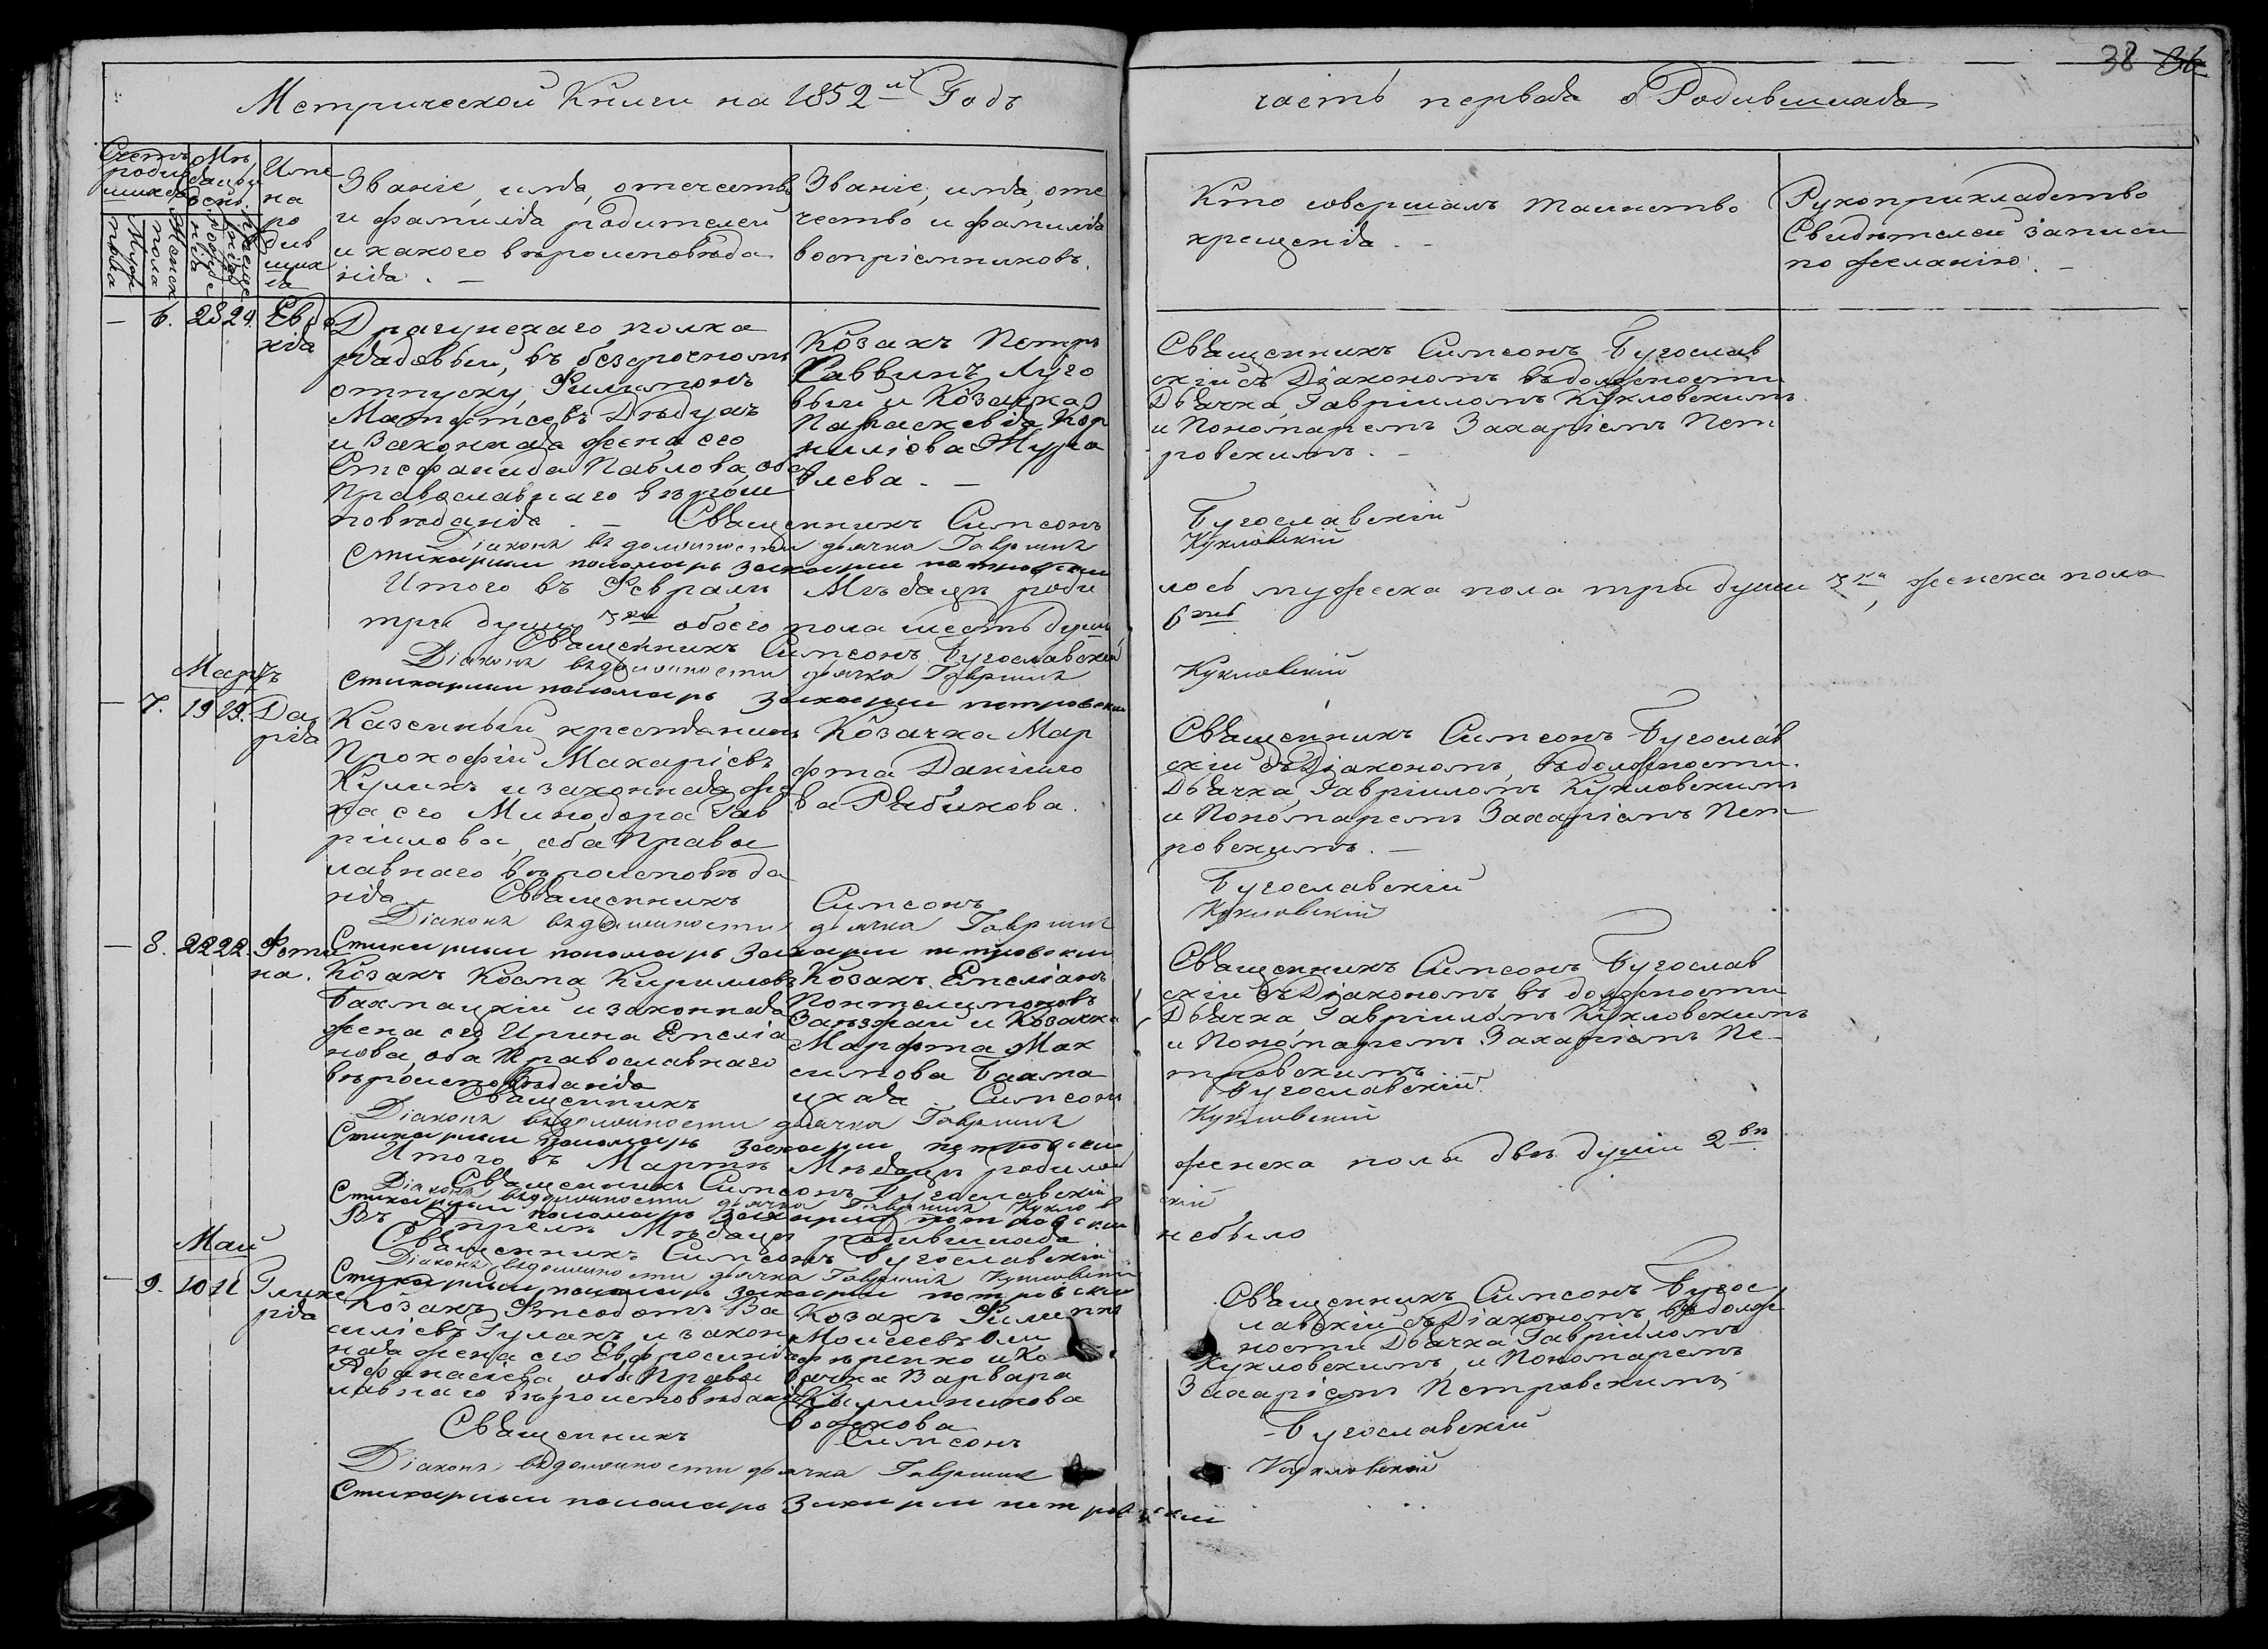 38 36
Метрической Книги на 1852й Годъ
часть первая о Родившихся
Счетъ родившихся
Мужеска пола
Женска пола
Мѣсяцъ и день
рожденія
крещенія
Имена родившихся
Званіе, имя, отечество
и фамилія родителей
и какого вѣроисповѣда
нія. —
Званіе, имя, оте
чество и фамилія
воспріемниковъ.
Кто совершалъ таинство
крещенія. —
Рукоприкладство
Свидѣтелей записи
по желанію. —
— 6. 28 29. Евдо
кія
Драгунскаго полка
рядовый, въ безсрочномъ
отпуску, Филимонъ
Матфеевъ Дѣдухъ
и законная жена его
Стефанида Павлова, оба
Православнаго вѣроис
повѣданія. —
Козакъ Петръ
Саввинъ Луго
вый и Козачка
Параскевія Кор
нилієва Жура
влева. —
Священникъ Симеонъ Бугослав
скій съ Діакономъ въ должности
Дьячка, Гавріиломъ Кукловскимъ
и Пономаремъ Захаріемъ Пет
ровскимъ. —
Священникъ Симеонъ Бугославскій
Діаконъ въ должности дьячка Гавріилъ Кукловскій
Стихарный пономарь Захарій петровский
Итого въ Февралѣ Мѣсяцѣ роди
лось мужеска пола три души 3ри, женска пола
три души 3ри обоего пола шесть душъ
6ть
Священникъ Симеонъ Бугославскій
Діаконъ въ должности дьячка Гавріилъ Кукловскій
Стихарный пономарь Захарий петровский
Мартъ
— 7. 19 19. Да
рія
Казенный крестьянинъ
Прокофій Макаріевъ
Куликъ и законная же
на его Минодора Гав
ріилова, оба Правос
лавнаго вѣроисповѣда
нія
Козачка Мар
фа Даніило
ва Рябикова.
Священникъ Симеонъ Бугослав
скій съ Діакономъ, въ должности
Дьячка, Гавріиломъ Кукловскимъ
и Пономаремъ Захаріемъ Пет
ровскимъ. —
Священникъ Симеонъ Бугославскій
Діаконъ въ должности дьячка Гавріилъ Кукловскій
Стихарный пономарь Захарий петровский
— 8. 22 22. Фоти
на.
Козакъ Косма Кириловъ
Бахмацкій и законная
жена его Ирина Емеліа
нова, оба Православнаго
вѣроисповѣданія
Козакъ Емеліанъ
Понтелимоновъ
Заѣзжай и Козачка
Марфа Мак
симова Бахма
цкая.
Священникъ Симеонъ Бугослав
скій съ Діакономъ, въ должности
Дьячка, Гавріиломъ Кукловскимъ
и Пономаремъ Захаріемъ Пе-
тровскимъ
Священникъ Симеонъ Бугославскій
Діаконъ въ должности дьячка Гавріилъ Кукловскій
Стихарный пономарь Захарий петровский
Итого въ Мартѣ Мѣсяцѣ родилось
женска пола двѣ души 2вѣ
Священникъ Симеонъ Бугославскій
Діаконъ въ должности дьячка Гавріилъ Куклов
скій
Стихарный пономарь Захарий петровский
Въ Апрелѣ Мѣсяцѣ родившихся
небыло
Священникъ Симеонъ Бугославскій
Діаконъ въ должности дьячка Гавріилъ Кукловскій
Стихарный пономарь Захарий петровский
Май
— 9. 10 11 Глике
рія
Козакъ Феодотъ Ва
силіевъ Гулакъ и закон
ная жена его Евфросинія
Афанасіева, оба Правос
лавнаго вѣроисповѣданія
Козакъ Филиппъ
Моисеевъ Оли
фѣренко и Ко
зачка Варвара
Калиникова
Божкова
Священникъ Симеонъ Бугос
лавскій съ Діакономъ, въ долж
ности Дьячка Гавріиломъ
Кукловскимъ, и Пономаремъ
Захаріемъ Петровскимъ
Священникъ Симеонъ Бугославскій
Діаконъ въ должности дьячка Гавріилъ Кукловскій
Стихарный пономарь Захарий петровский